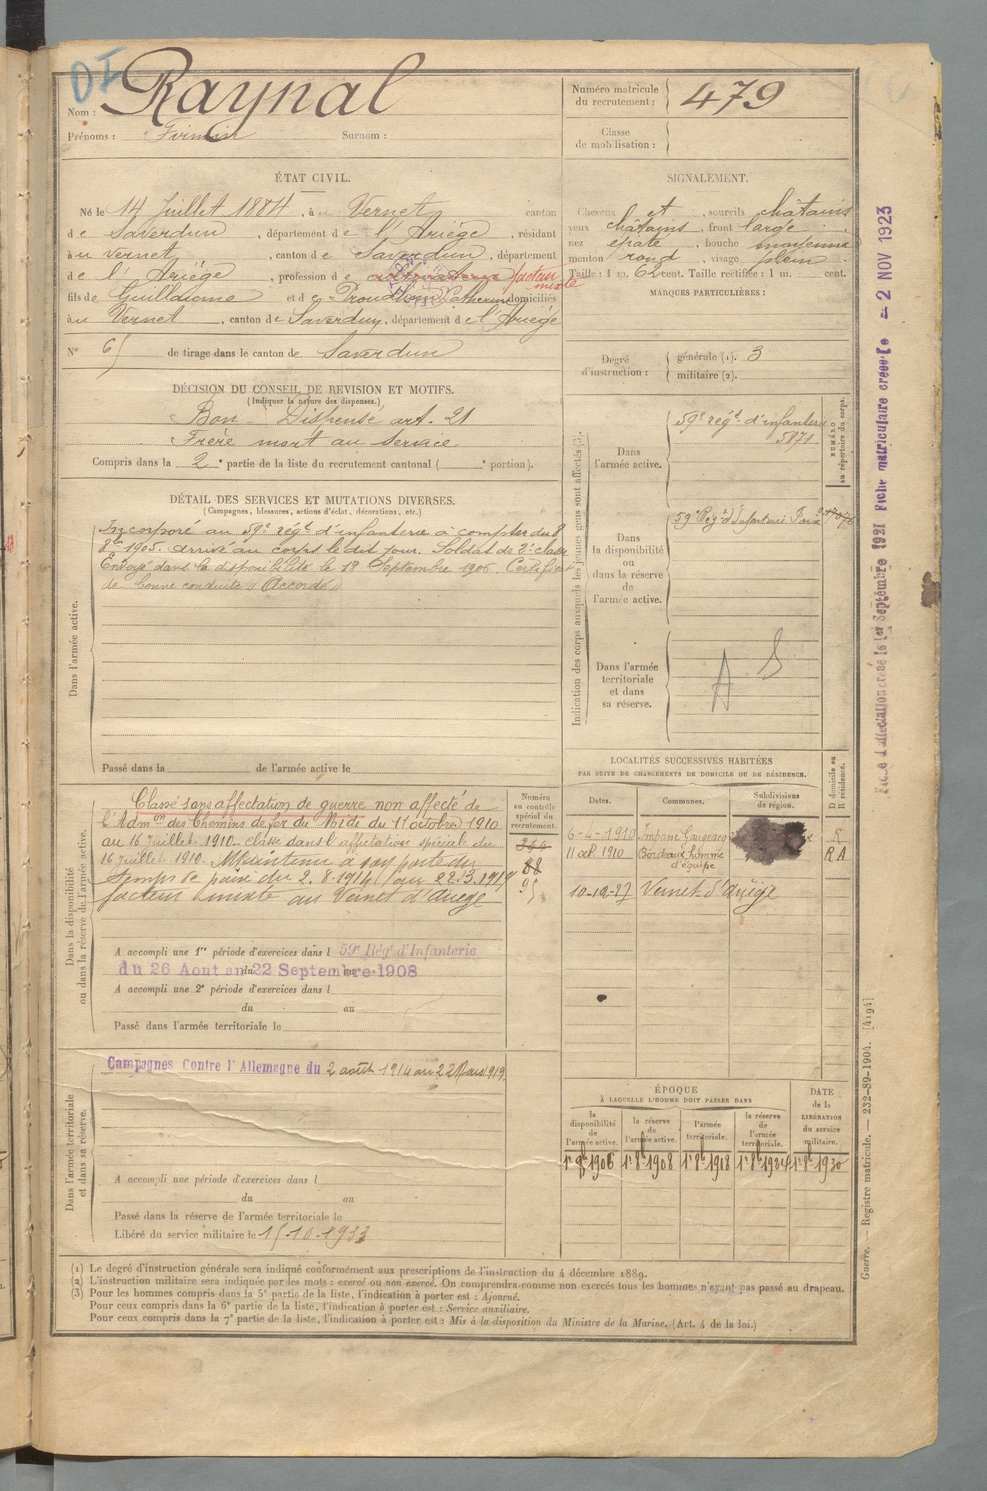 DI
Nom : Raynal
Prénoms : Firmin Surnom :
Numéro matricule du recrutement : 479
Classe de mobilisation :
ÉTAT CIVIL.
Né le 14 Juillet 1884, à Vernet canton
de Saverdun, département de l'Ariège, résidant
à Vernet, canton de Saverdun, département
de l'Ariège, profession de cultivateur facteur mixte
fils de Guillaume et de Proudhom Catherine domiciliés
à Vernet, canton de Saverdun, département de l'Ariège
N° 65 de tirage dans le canton de Saverdun
SIGNALEMENT.
Cheveux et, sourcils châtains
yeux châtains, front large
nez épaté, bouche moyenne
menton rond, visage plein
Taille : 1 m. 62 cent. Taille rectifiée : 1 m. cent.
MARQUES PARTICULIÈRES :
Degré d'instruction : générale (1). 3
militaire (2).
DÉCISION DU CONSEIL DE REVISION ET MOTIFS.
(Indiquer la nature des dispenses.)
Bon - Dispensé art. 21
Frère mort au service
Compris dans la 2e partie de la liste du recrutement cantonal ( e portion).
DÉTAIL DES SERVICES ET MUTATIONS DIVERSES.
(Campagnes, blessures, actions d'éclat, décorations, etc.)
Dans l'armée active.
Incorporé au 59e régt d'infanterie à compter du 8
8bre 1905. arrivé au corps le dit jour. Soldat de 2e classe
Envoyé dans la disponibilité le 18 Septembre 1906. Certificat
de bonne conduite "Accordé"
Passé dans la de l'armée active le
Indication des corps auxquels les jeunes gens sont affectés (3).
Dans l'armée active.
59e régt d'infanterie
5871
NUMÉRO au répertoire du corps.
Dans la disponibilité ou dans la réserve de l'armée active.
59e Régt d'Infanterie Foix
Dans l'armée territoriale et dans sa réserve.
A. S
Dans la disponibilité ou dans la réserve de l'armée active.
Classé sans affectation de guerre non affecté de
l'Admon des Chemins de fer du Midi du 11 octobre 1910
au 16 juillet 1910. classé dans l'affectation spéciale du
16 juillet 1910. Maintenu à son poste du
temps de paix du 2.8.1914 au 22.3.1919
facteur mixte au Vernet d'Ariège
Numéro au contrôle spécial du recrutement.
88
95
A accompli une 1re période d'exercices dans l 59e Régt d'Infanterie
du 26 Aout au 22 Septembre 1908
A accompli une 2e période d'exercices dans l
du au
Passé dans l'armée territoriale le
LOCALITÉS SUCCESSIVES HABITÉES
PAR SUITE DE CHANGEMENTS DE DOMICILE OU DE RÉSIDENCE.
Dates. Communes. Subdivisions de région. D domicile ou R résidence.
6-4-1910 Impasse R
11 oct. 1910 Bordeaux homme d'équipe RA
10-12-27 Vernet d'Ariège
Dans l'armée territoriale et dans sa réserve.
Campagnes Contre l'Allemagne du 2 août 1914 au 22 Mars 1919.
A accompli une période d'exercices dans l
du au
Passé dans la réserve de l'armée territoriale le
Libéré du service militaire le 15.10.1933
ÉPOQUE
À LAQUELLE L'HOMME DOIT PASSER DANS
la disponibilité de l'armée active.
la réserve de l'armée active.
l'armée territoriale.
la réserve de l'armée territoriale.
DATE de la LIBÉRATION du service militaire.
1er 9b 1906 1er 8b 1908 1er 8b 1918 1er 8b 1924 1er 8b 1930
(1) Le degré d'instruction générale sera indiqué conformément aux prescriptions de l'instruction du 4 décembre 1889.
(2) L'instruction militaire sera indiquée par les mots : exercé ou non exercé. On comprendra comme non exercés tous les hommes n'ayant pas passé au drapeau.
(3) Pour les hommes compris dans la 5e partie de la liste, l'indication à porter est : Ajourné.
Pour ceux compris dans la 6e partie de la liste, l'indication à porter est : Service auxiliaire.
Pour ceux compris dans la 7e partie de la liste, l'indication à porter est : Mis à la disposition du Ministre de la Marine. (Art. 4 de la loi.)
Fiche d'affectation créée le 1er Septembre 1921 Fiche matriculaire créée le - 2 NOV 1923
Guerre. — Registre matricule. — 232-89-1904. [4194]